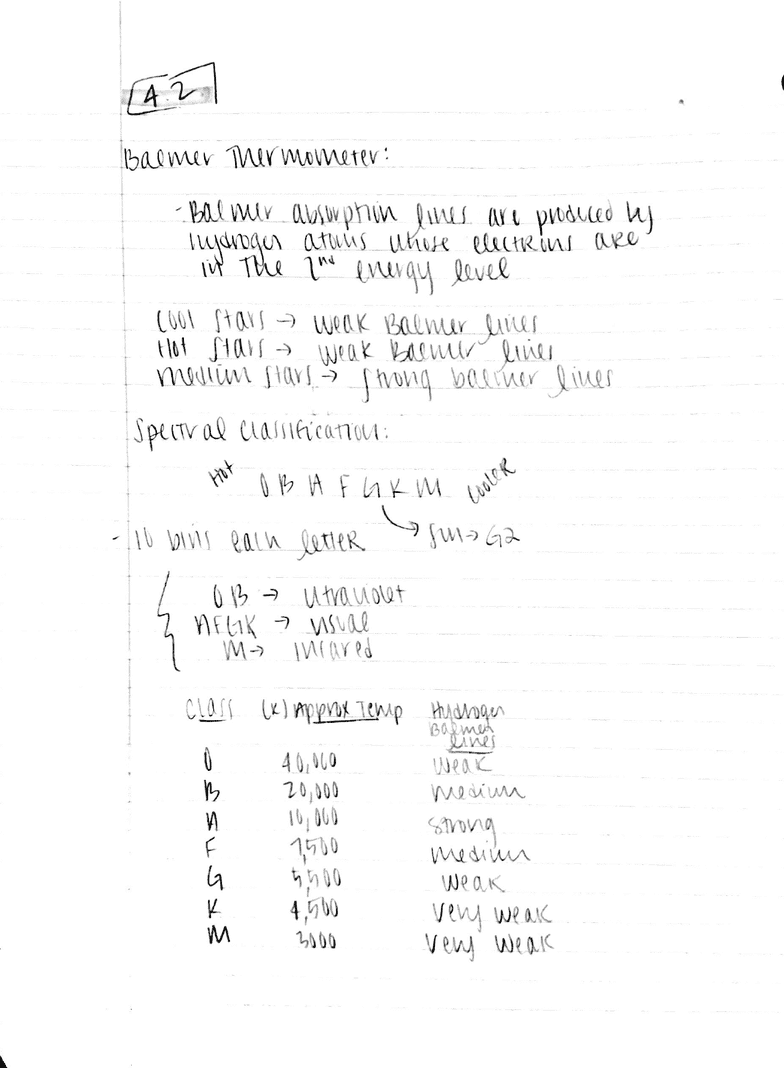 4.2
Balmer Thermometer:
- Balmer absorption lines are produced by
hydrogen atoms whose electrons are
in the 2nd energy level
Cool stars → weak Balmer lines
Hot stars → weak Balmer lines
medium stars → strong balmer lines
Spectral Classification:
Hot O B A F G K M cooler
- 10 bins each letter → Sun → G2
O B → utraviolet
AFGK → visual
M → infared
Class (K) Approx Temp Hydrogen
Balmer
lines
O 40,000 weak
B 20,000 medium
A 10,000 strong
F 7,500 medium
G 5,500 weak
K 4,500 very weak
M 3000 very weak